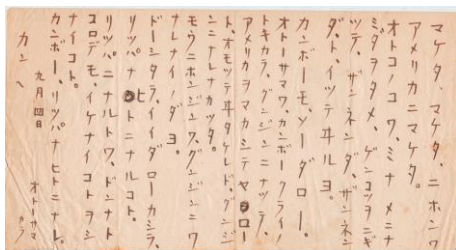 マケタ、マケタ、ニホンワ
アメリカニマケタ。
オトコノコワ、ミナメニナ
ミダヲタメ、ゲンコツヲニギ
ツテ、ザンネンダ、ザンネン
ダ、トイツテヰルヨ。
カンボーモ、ソーダロー。
オトーサマワ、カンボークライノ
トキカラ、グンジンニナツテ、
アメリカヲマカシテヤロー
ト、オモツテヰタケレド、グンジ
ンニナレナカツタ。
モウニホンジンワ、グンジンニワ
ナレナイノダヨ。
ドーシタラ、イイダローカシラ、
リツパナヒトニナルコト。
リツパニナルトワ、ドンナト
コロデモ、イケナイコトヲシ
ナイコト。
カンボー、リツパナヒトニナレ。
九月四日
オトーサマ
カラ
カンヘ